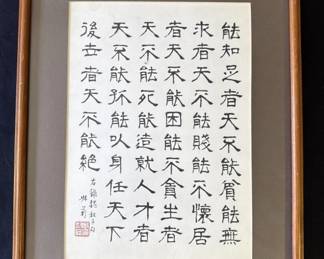 能知足者天不能貧能無
求者天不能賤能不懷居
者天不能困能不貪生者
天不能死能造就人才者
天不能孤能以身任天下
後世者天不能絕
右錄